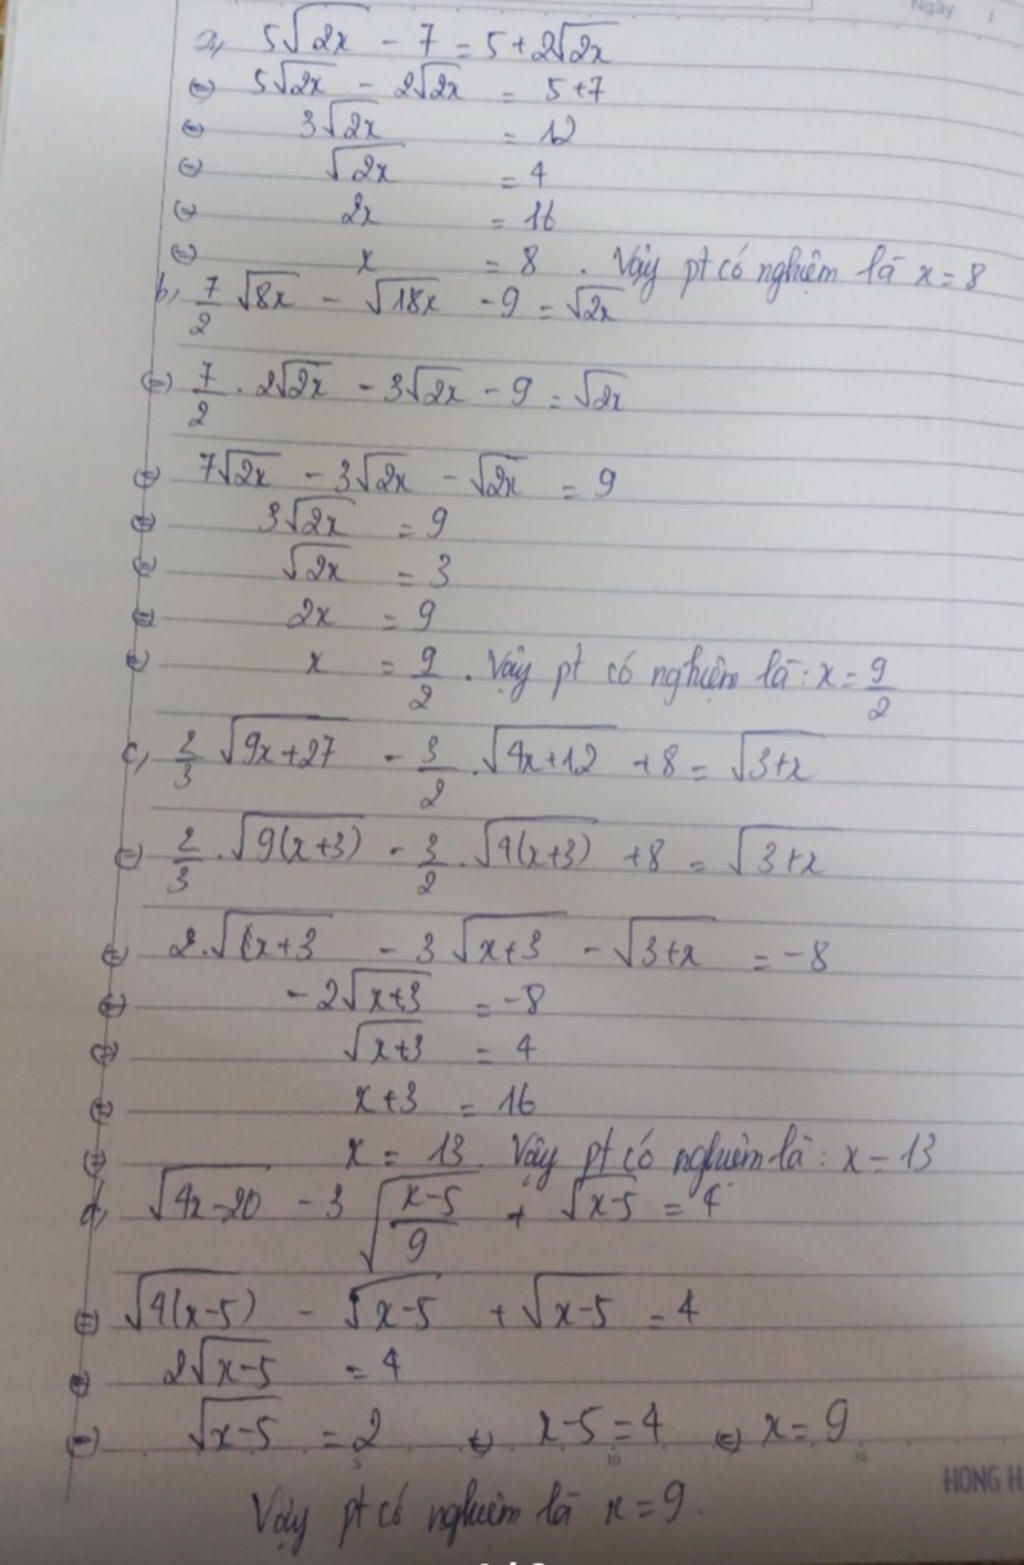 Ngày /
a, 5√2x - 7 = 5 + 2√2x
⇔ 5√2x - 2√2x = 5+7
⇔ 3√2x = 12
⇔ √2x = 4
⇔ 2x = 16
⇔ x = 8 . Vậy pt có nghiệm là x = 8
b, 7/2 √8x - √18x - 9 = √2x
⇔ 7/2 . 2√2x - 3√2x - 9 = √2x
⇔ 7√2x - 3√2x - √2x = 9
⇔ 3√2x = 9
⇔ √2x = 3
⇔ 2x = 9
⇔ x = 9/2 . Vậy pt có nghiệm là : x = 9/2
c, 2/3 √(9x+27) - 3/2 . √(4x+12) + 8 = √(3+x)
⇔ 2/3 . √(9(x+3)) - 3/2 . √(4(x+3)) + 8 = √(3+x)
⇔ 2.√(x+3) - 3√(x+3) - √(3+x) = -8
⇔ -2√(x+3) = -8
⇔ √(x+3) = 4
⇔ x+3 = 16
⇔ x = 13. Vậy pt có nghiệm là : x = 13
d, √(4x-20) - 3√((x-5)/9) + √(x-5) = 4
⇔ √(4(x-5)) - √(x-5) + √(x-5) = 4
⇔ 2√(x-5) = 4
⇔ √(x-5) = 2 ⇔ x-5 = 4 ⇔ x = 9
5 10 15
HONG H
Vậy pt có nghiệm là x = 9.